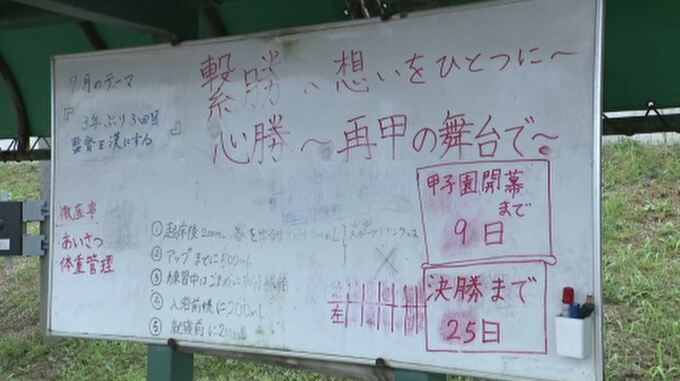 7月のテーマ
『3年ぶり3回目
監督を漢にする』
繋勝 〜想いをひとつに〜
心勝 〜再甲の舞台で〜
甲子園開幕
まで
9日
決勝まで
25日
徹底事
あいさつ
体重管理
① 起床後200mL
② アップまでに500mL
③ 練習中はこまめに
④ 入浴前後に200mL
⑤ 就寝前に
左